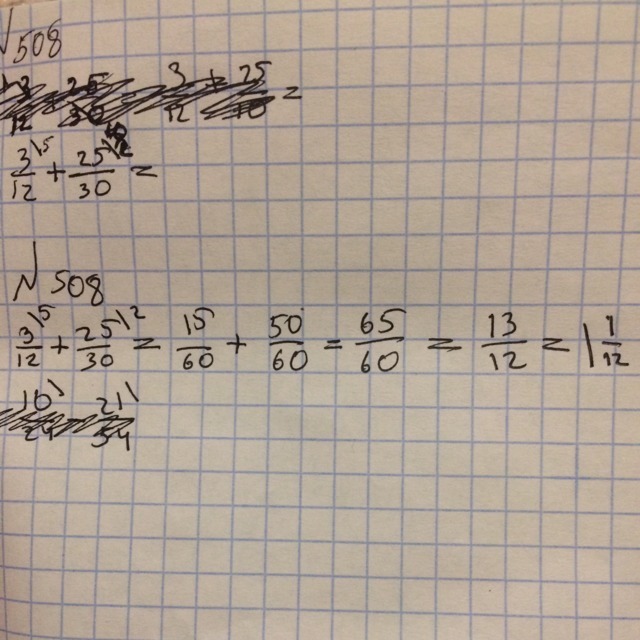 √508
3/12 + 25/30 =
3/12\5 + 25/30 =
№ 508
3/12\5 + 25/30\2 = 15/60 + 50/60 = 65/60 = 13/12 = 1 1/12